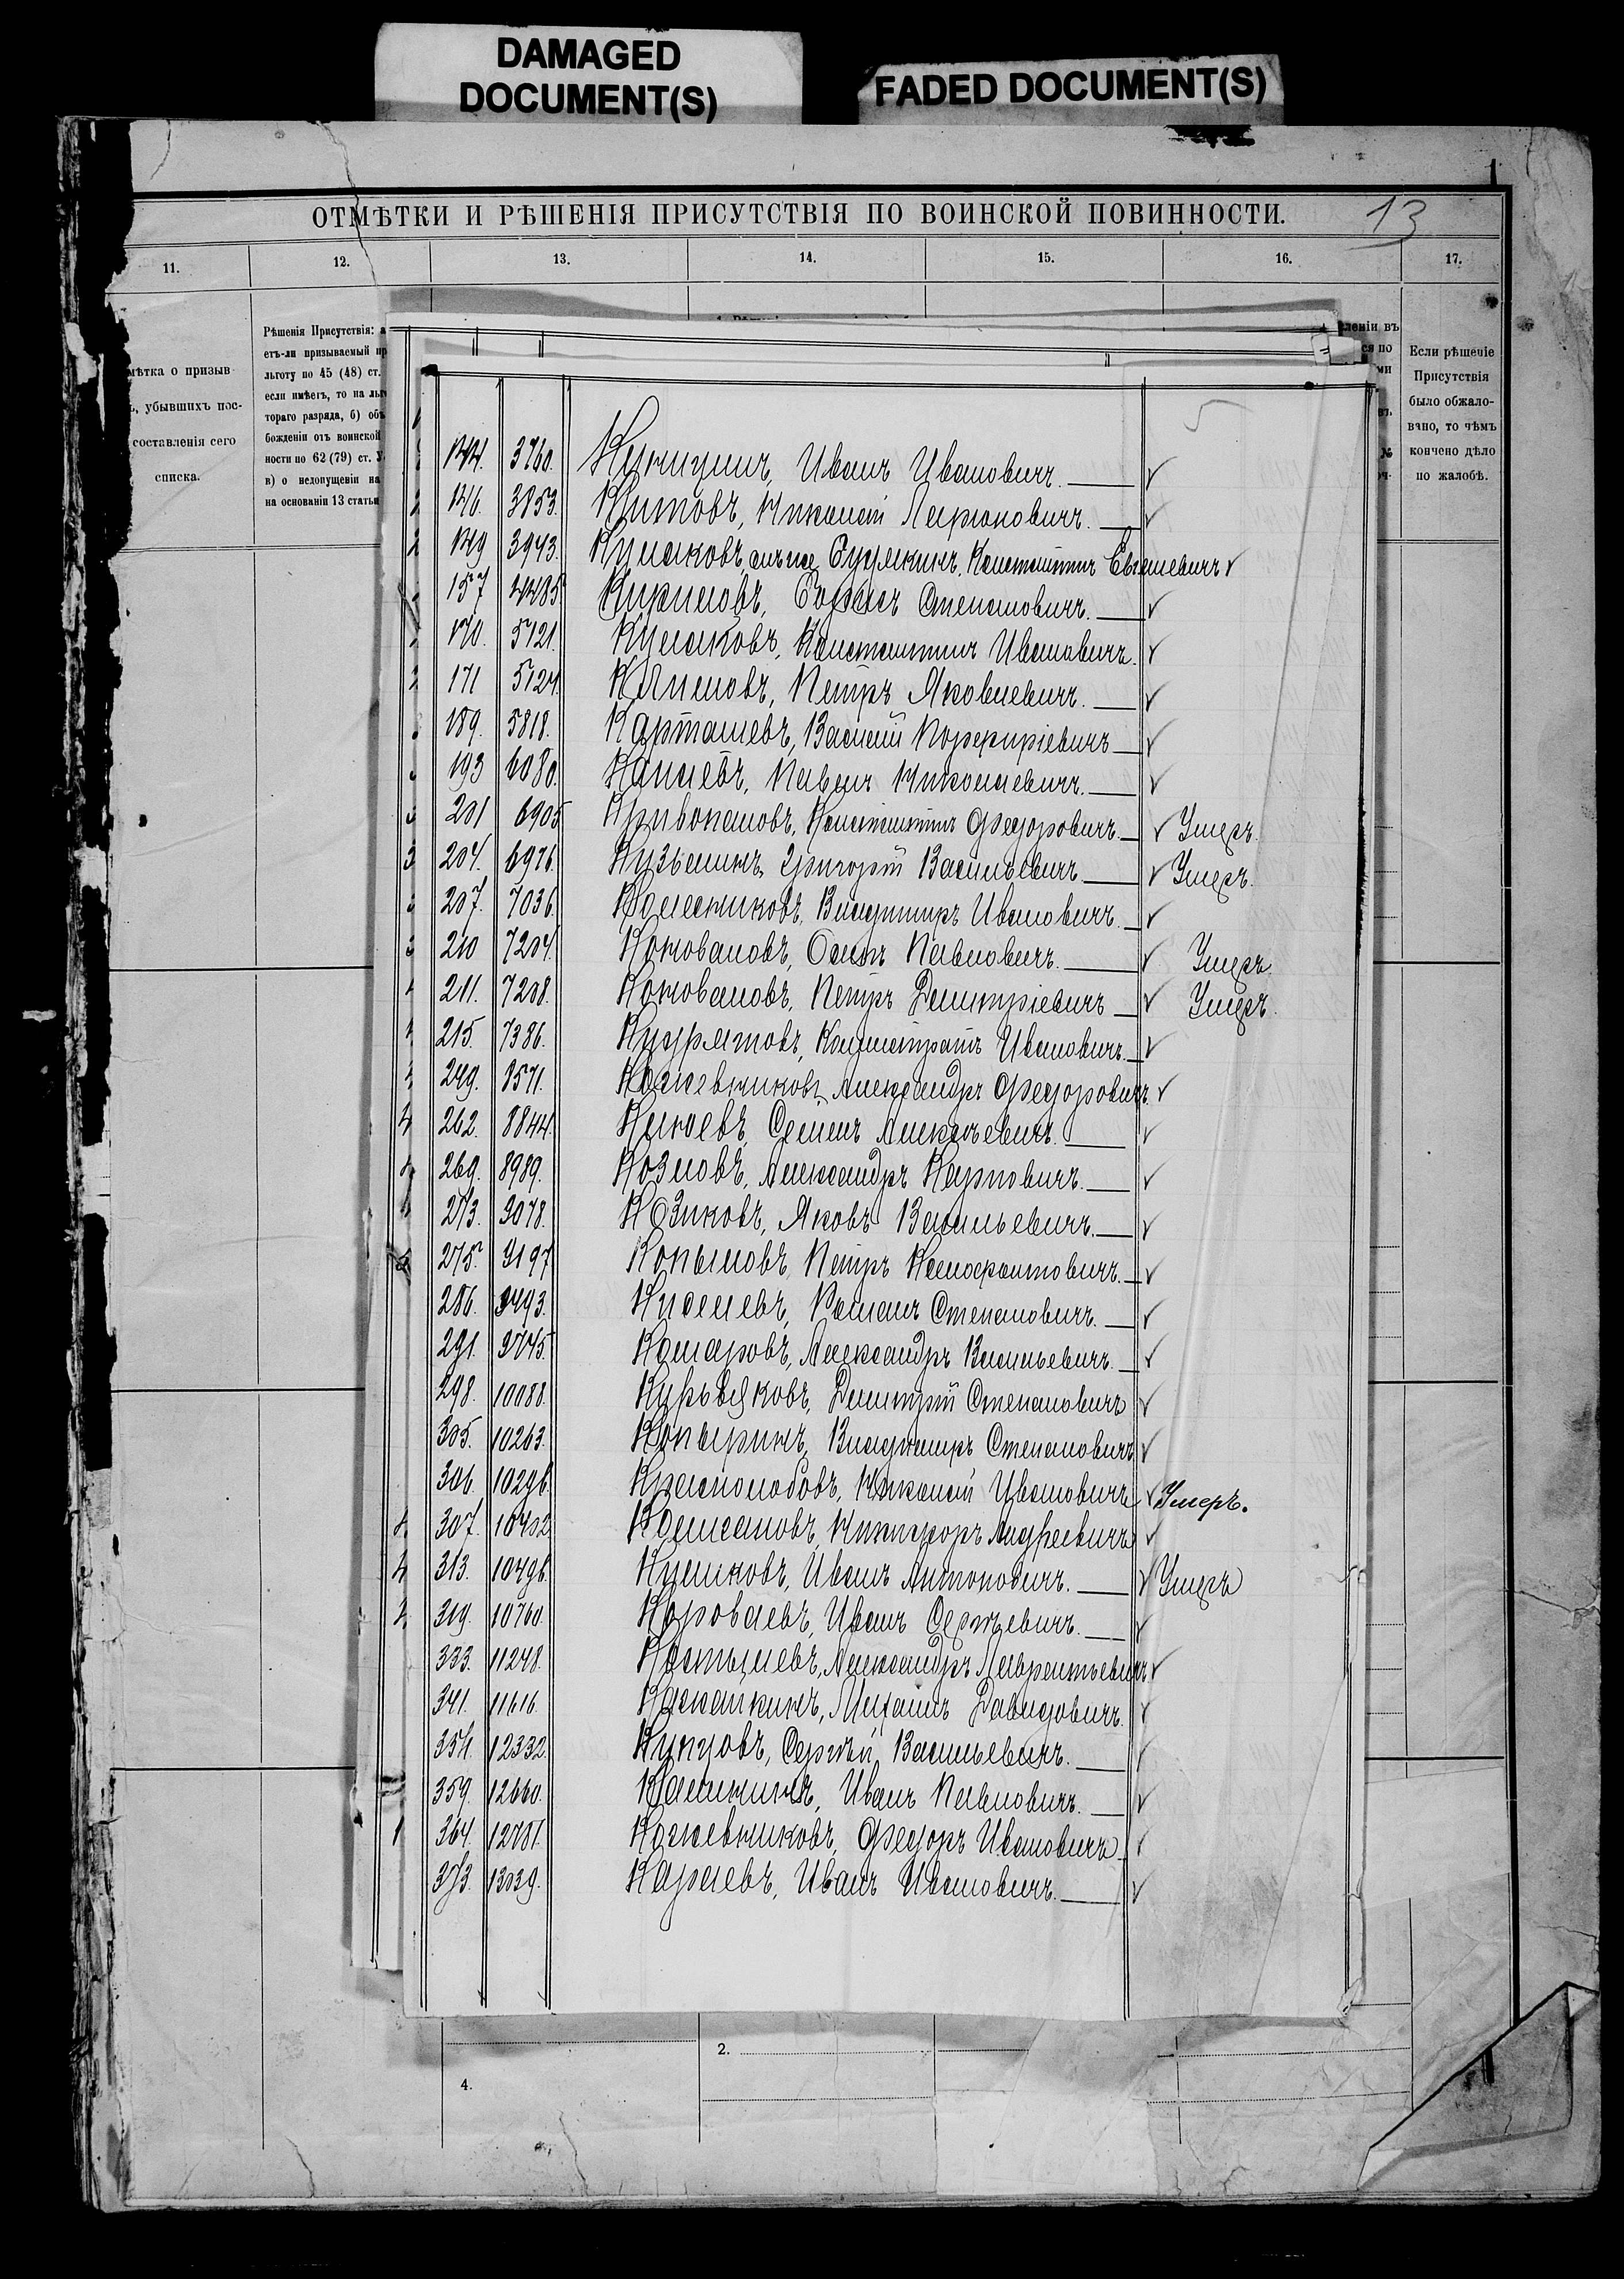 DAMAGED
DOCUMENT(S)
FADED DOCUMENT(S)
ОТМѢТКИ И РѢШЕНІЯ ПРИСУТСТВІЯ ПО ВОИНСКОЙ ПОВИННОСТИ.
13
11. 12. 13. 14. 15. 16. 17.
мѣтка о призыв
ъ, убывшихъ пос-
составленія сего
списка.
Рѣшенія Присутствія: а
етъ-ли призываемый пр
льготу по 45 (48) ст.
если имѣетъ, то на льг
тораго разряда, б) объ
божденіи отъ воинской
ности по 62 (79) ст. У
в) о недопущеніи на
на основаніи 13 статьи
Если рѣшеніе
Присутствія
было обжало-
вано, то чѣмъ
кончено дѣло
по жалобѣ.
144. 3760. Иванъ Ивановичъ. ✓
146. 3853. Китовъ, Николай Ларіоновичъ. ✓
149 3943. Кулаковъ, онъ же Константинъ ✓
157 4485 Кириловъ, Борисъ Степановичъ. ✓
170. 5121. Кулаковъ, Константинъ Ивановичъ. ✓
171 5124. Петръ Яковлевичъ. ✓
189. 5818. Карташевъ, Василій Порфиріевичъ ✓
193 6080. Павелъ Николаевичъ. ✓
201 6905 Константинъ Федоровичъ. ✓ Умеръ.
204. 6976. Кузьминъ, Григорій Васильевичъ ✓ Умеръ.
207. 7036. Колесниковъ, Владиміръ Ивановичъ. ✓
210 7204. Коновановъ, Осипъ Павловичъ. ✓ Умеръ.
211. 7208. Коновановъ, Петръ Дмитріевичъ ✓ Умеръ.
215. 7386. Ивановичъ. ✓
249. 8571. Кожевниковъ, Александръ Федоровичъ. ✓
262. 8844. Семенъ Алексѣевичъ. ✓
269. 8989. Козловъ, Александръ Карповичъ. ✓
273. 9078. Козиковъ, Яковъ Васильевичъ. ✓
275. 9197 Копыловъ, Петръ Ксенофонтовичъ. ✓
286. 9493. Киселевъ, Романъ Степановичъ. ✓
291. 9745. Комаровъ, Александръ Васильевичъ. ✓
298. 10088. Курьяковъ, Дмитрій Степановичъ ✓
305. 10263. Копыринъ, Владиміръ Степановичъ ✓
306. 10296. Краснолобовъ, Николай Ивановичъ ✓ Умеръ.
307. 10402 Никифоръ Андреевичъ ✓
313. 10496. Иванъ Антоновичъ. ✓ Умеръ
319. 10760. Короваевъ, Иванъ Сергѣевичъ. ✓
333. 11248. Костылевъ, Александръ Лаврентьевичъ ✓
341. 11616. Михаилъ Давидовичъ. ✓
354. 12332. Купцовъ, Сергѣй Васильевичъ. ✓
359. 12660. Калининъ, Иванъ Павловичъ. ✓
364. 12781. Кожевниковъ, Федоръ Ивановичъ. ✓
373. 13039. Караевъ, Иванъ Ивановичъ. ✓
2.
4.